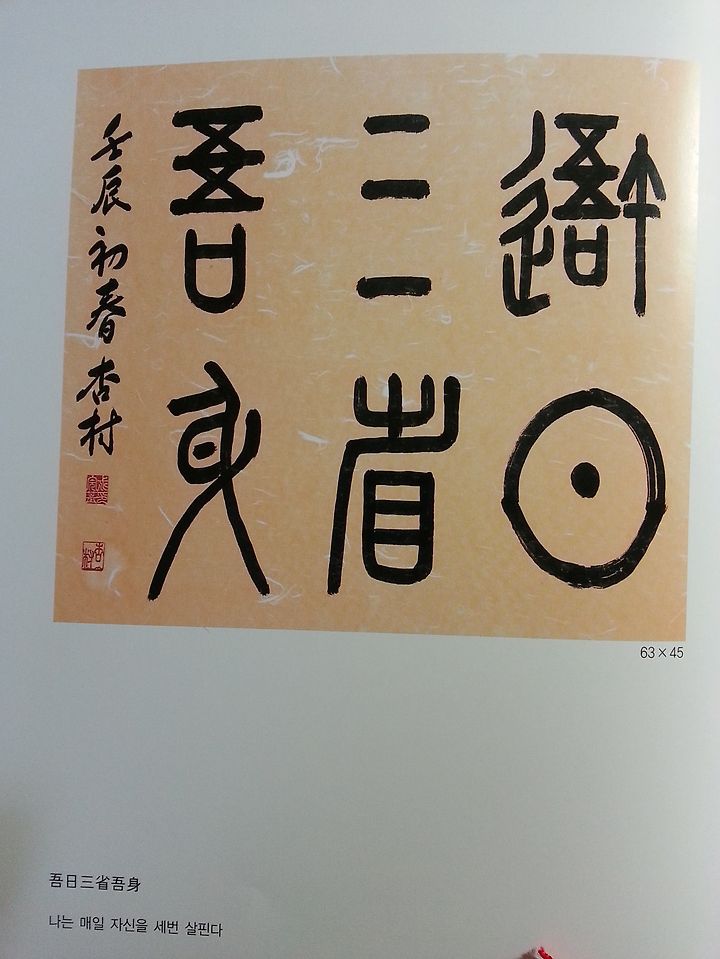 吾日
三省
吾身
壬辰初春 杏村
63×45
吾日三省吾身
나는 매일 자신을 세번 살핀다